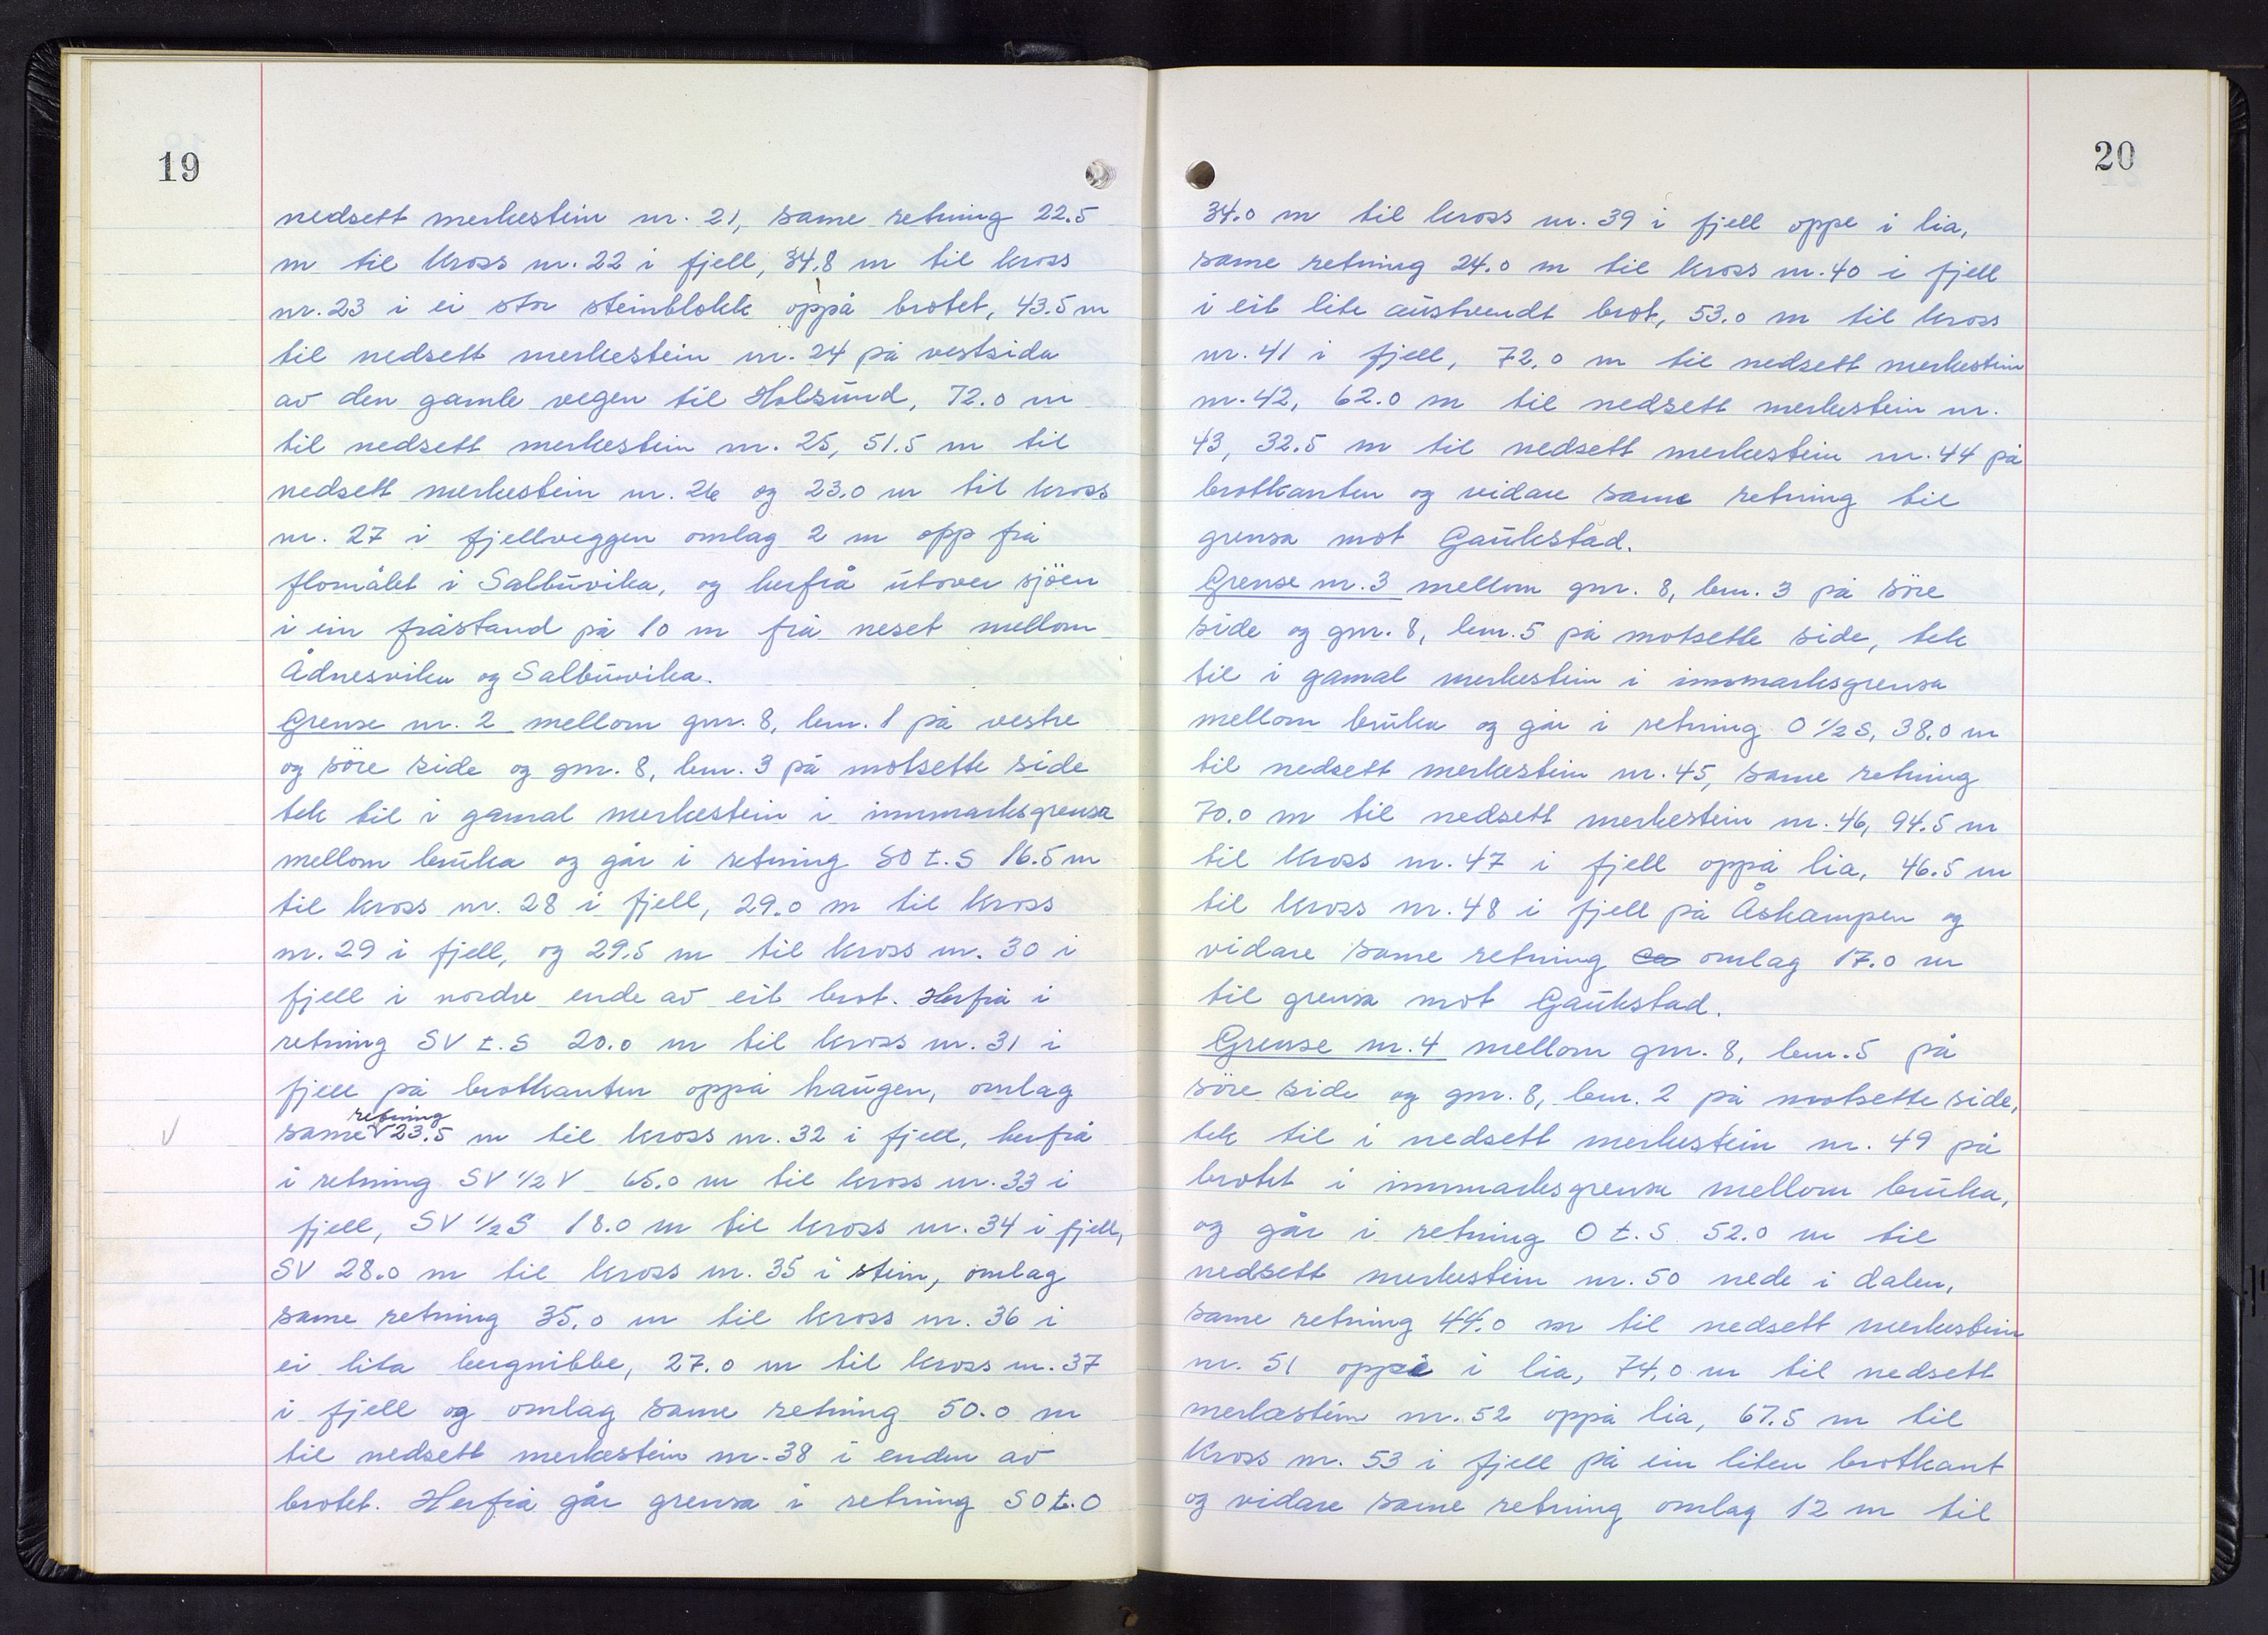 19
nedsett merkestein nr. 21, same retning 22.5
m til kross nr. 22 i fjell, 34.8 m til kross
nr. 23 i ei stor steinblokk oppå brotet, 43.5 m
til nedsett merkestein nr. 24 på vestsida
av den gamle vegen til Holsund, 72.0 m
til nedsett merkestein nr. 25, 51.5 m til
nedsett merkestein nr. 26 og 23.0 m til kross
nr. 27 i fjellveggen omlag 2 m opp frå
flomålet i Salbuvika, og herfrå utover sjöen
i ein fråstand på 10 m frå neset mellom
Ådnesvika og Salbuvika.
Grense nr. 2 mellom gnr. 8, bnr. 1 på vestre
og söre side og gnr. 8, bnr. 3 på motsette side
tek til i gamal merkestein i innmarksgrensa
mellom bruka og går i retning SO t.S 16.5 m
til kross nr. 28 i fjell, 29.0 m til kross
nr. 29 i fjell, og 29.5 m til kross nr. 30 i
fjell i nordre ende av eit brot. Herfrå i
retning SV t.S 20.0 m til kross nr. 31 i
fjell på brotkanten oppå haugen, omlag
retning
same V 23.5 m til kross nr. 32 i fjell, herfrå
i retning SV 1/2 V 65.0 m til kross nr. 33 i
fjell, SV 1/2 S 18.0 m til kross nr. 34 i fjell,
SV 28.0 m til kross nr. 35 i stein, omlag
same retning 35.0 m til kross nr. 36 i
ei lita bergnibbe, 27.0 m til kross nr. 37
i fjell og omlag same retning 50.0 m
til nedsett merkestein nr. 38 i enden av
brotet. Herfrå går grensa i retning SO t.O
20
34.0 m til kross nr. 39 i fjell oppe i lia,
same retning 24.0 m til kross nr. 40 i fjell
i eit lite austvendt brot, 53.0 m til kross
nr. 41 i fjell, 72.0 m til nedsett merkestein
nr. 42, 62.0 m til nedsett merkestein nr.
43, 32.5 m til nedsett merkestein nr. 44 på
brotkanten og vidare same retning til
grensa mot Gaukstad.
Grense nr. 3 mellom gnr. 8, bnr. 3 på söre
side og gnr. 8, bnr. 5 på motsette side, tek
til i gamal merkestein i innmarksgrensa
mellom bruka og går i retning O 1/2 S, 38.0 m
til nedsett merkestein nr. 45, same retning
70.0 m til nedsett merkestein nr. 46, 94.5 m
til kross nr. 47 i fjell oppå lia, 46.5 m
til kross nr. 48 i fjell på Åskampen og
vidare same retning omlag 17.0 m
til grensa mot Gaukstad.
Grense nr. 4 mellom gnr. 8, bnr. 5 på
söre side og gnr. 8, bnr. 2 på motsette side,
tek til i nedsett merkestein nr. 49 på
brotet i innmarksgrensa mellom bruka,
og går i retning O t.S 52.0 m til
nedsett merkestein nr. 50 nede i dalen,
same retning 44.0 m til nedsett merkestein
nr. 51 oppe i lia, 74.0 m til nedsett
merkestein nr. 52 oppå lia, 67.5 m til
kross nr. 53 i fjell på ein liten brotkant
og vidare same retning omlag 12 m til